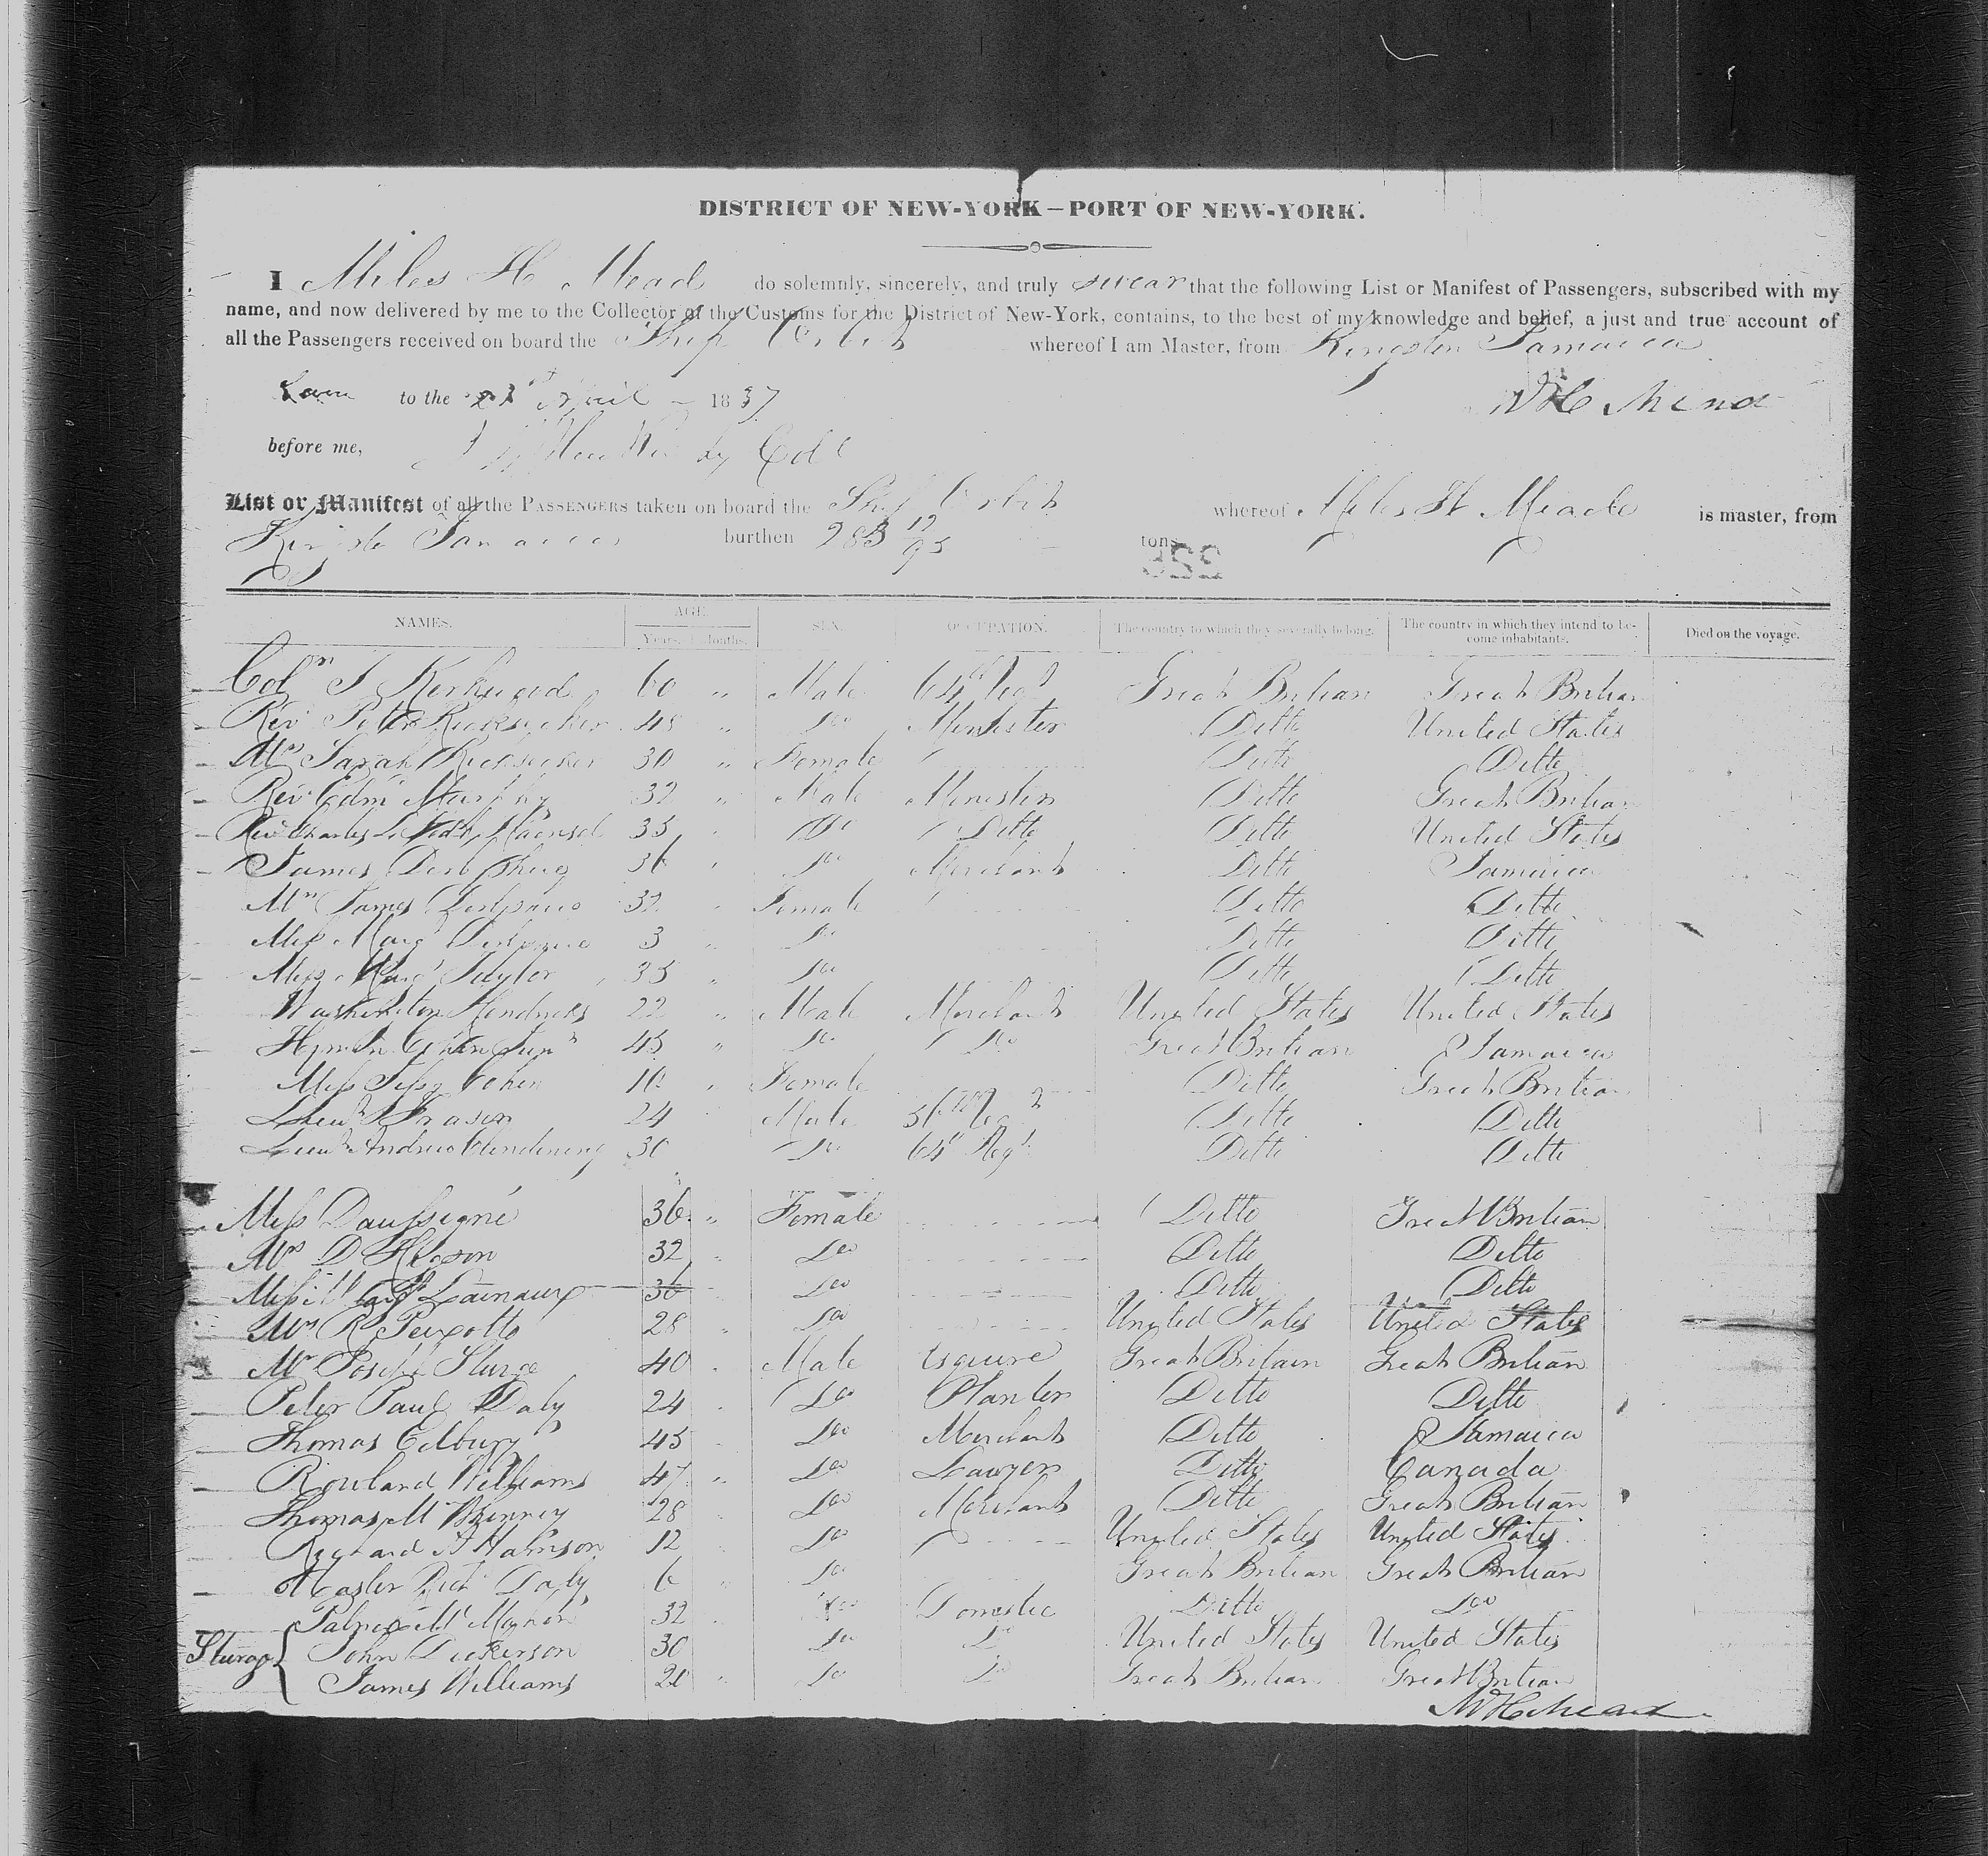 DISTRICT OF NEW-YORK—PORT OF NEW-YORK.
I Miles H Mead do solemnly, sincerely, and truly swear that the following List or Manifest of Passengers, subscribed with my
name, and now delivered by me to the Collector of the Customs for the District of New-York, contains, to the best of my knowledge and belief, a just and true account of
all the Passengers received on board the Ship Orbit whereof I am Master, from Kingston Jamaica
to the 21st April 1837 M H Mead
before me,
List or Manifest of all the PASSENGERS taken on board the Ship Orbit whereof Miles H Meade is master, from
Kingston Jamaica burthen 283 tons
NAMES. AGE. SEX. OCCUPATION. The country to which they severally belong. The country in which they intend to be-come inhabitants. Died on the voyage.
Years. Months.
Coln J Kerkwood 60 " Male 64th Regt Great Britian Great Britian
Rev Peter Ricksecker 48 " Do Minister Ditto United States
Mrs Sarah Ricksecker 30 " Female Ditto Ditto
Rev Edm Murphy 32 " Male Minister Ditto Great Britian
Rev Charles 35 Do Ditto Ditto United States
James 36 " Do Merchant Ditto Jamaica
Mrs James 32 " Female Ditto Ditto
Miss Marg 3 " Do Ditto Ditto
Miss Marg Taylor 35 " Do Ditto Ditto
Washington Hendricks 22 " Male Merchant United States United States
Hymn Cohen Junr 45 " Do Do Great Britian Jamaica
Miss Cohen 10 " Female Ditto Great Britian
Lieut Frason 24 Male 56th Regt Ditto Ditto
Lieut Andrew Clendening 30 Do 64th Regt Ditto Ditto
Miss Daussigné 36 " Female Ditto Great Britian
Mrs D 32 " Do Ditto Ditto
Miss 36 Do Ditto Ditto
Mrs R Peixotto 28 " Do United States United States
Mr Joseph Sturge 40 " Male Esquire Great Britain Great Britian
Peter Paul Daly 24 " Do Planter Ditto Ditto
Thomas Edbury 45 Do Merchant Ditto Jamaica
Rowland Williams 47 " Do Lawyer Ditto Canada
Thomas M 28 Do Merchant Ditto Great Britian
Richard H Harrison 12 Do United States United States
Master Daly 6 Do Great Britian Great Britian
32 Do Domestic Ditto Do
Sturge { John Dickerson 30 Do Do United States United States
James Williams 20 Do Do Great Britian Great Britian
M H Mead